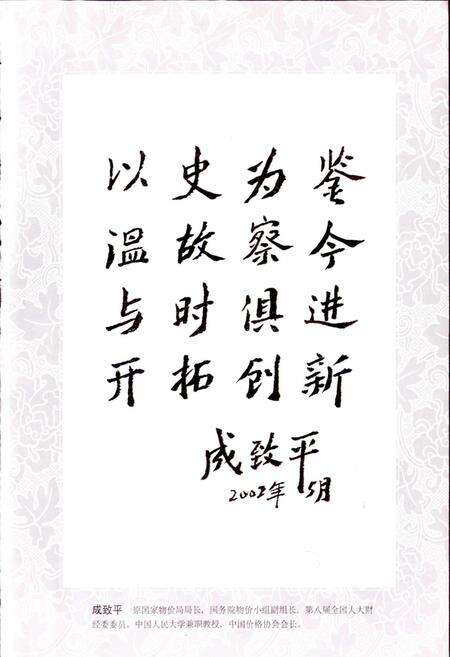 以史为鉴
温故察今
与时俱进
开拓创新
成致平
2002年5月
成致平 原国家物价局局长，国务院物价小组副组长，第八届全国人大财
经委委员，中国人民大学兼职教授，中国价格协会会长。